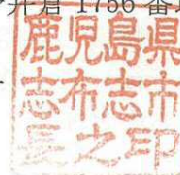 1756 番
鹿児島県
志布志市
長之印